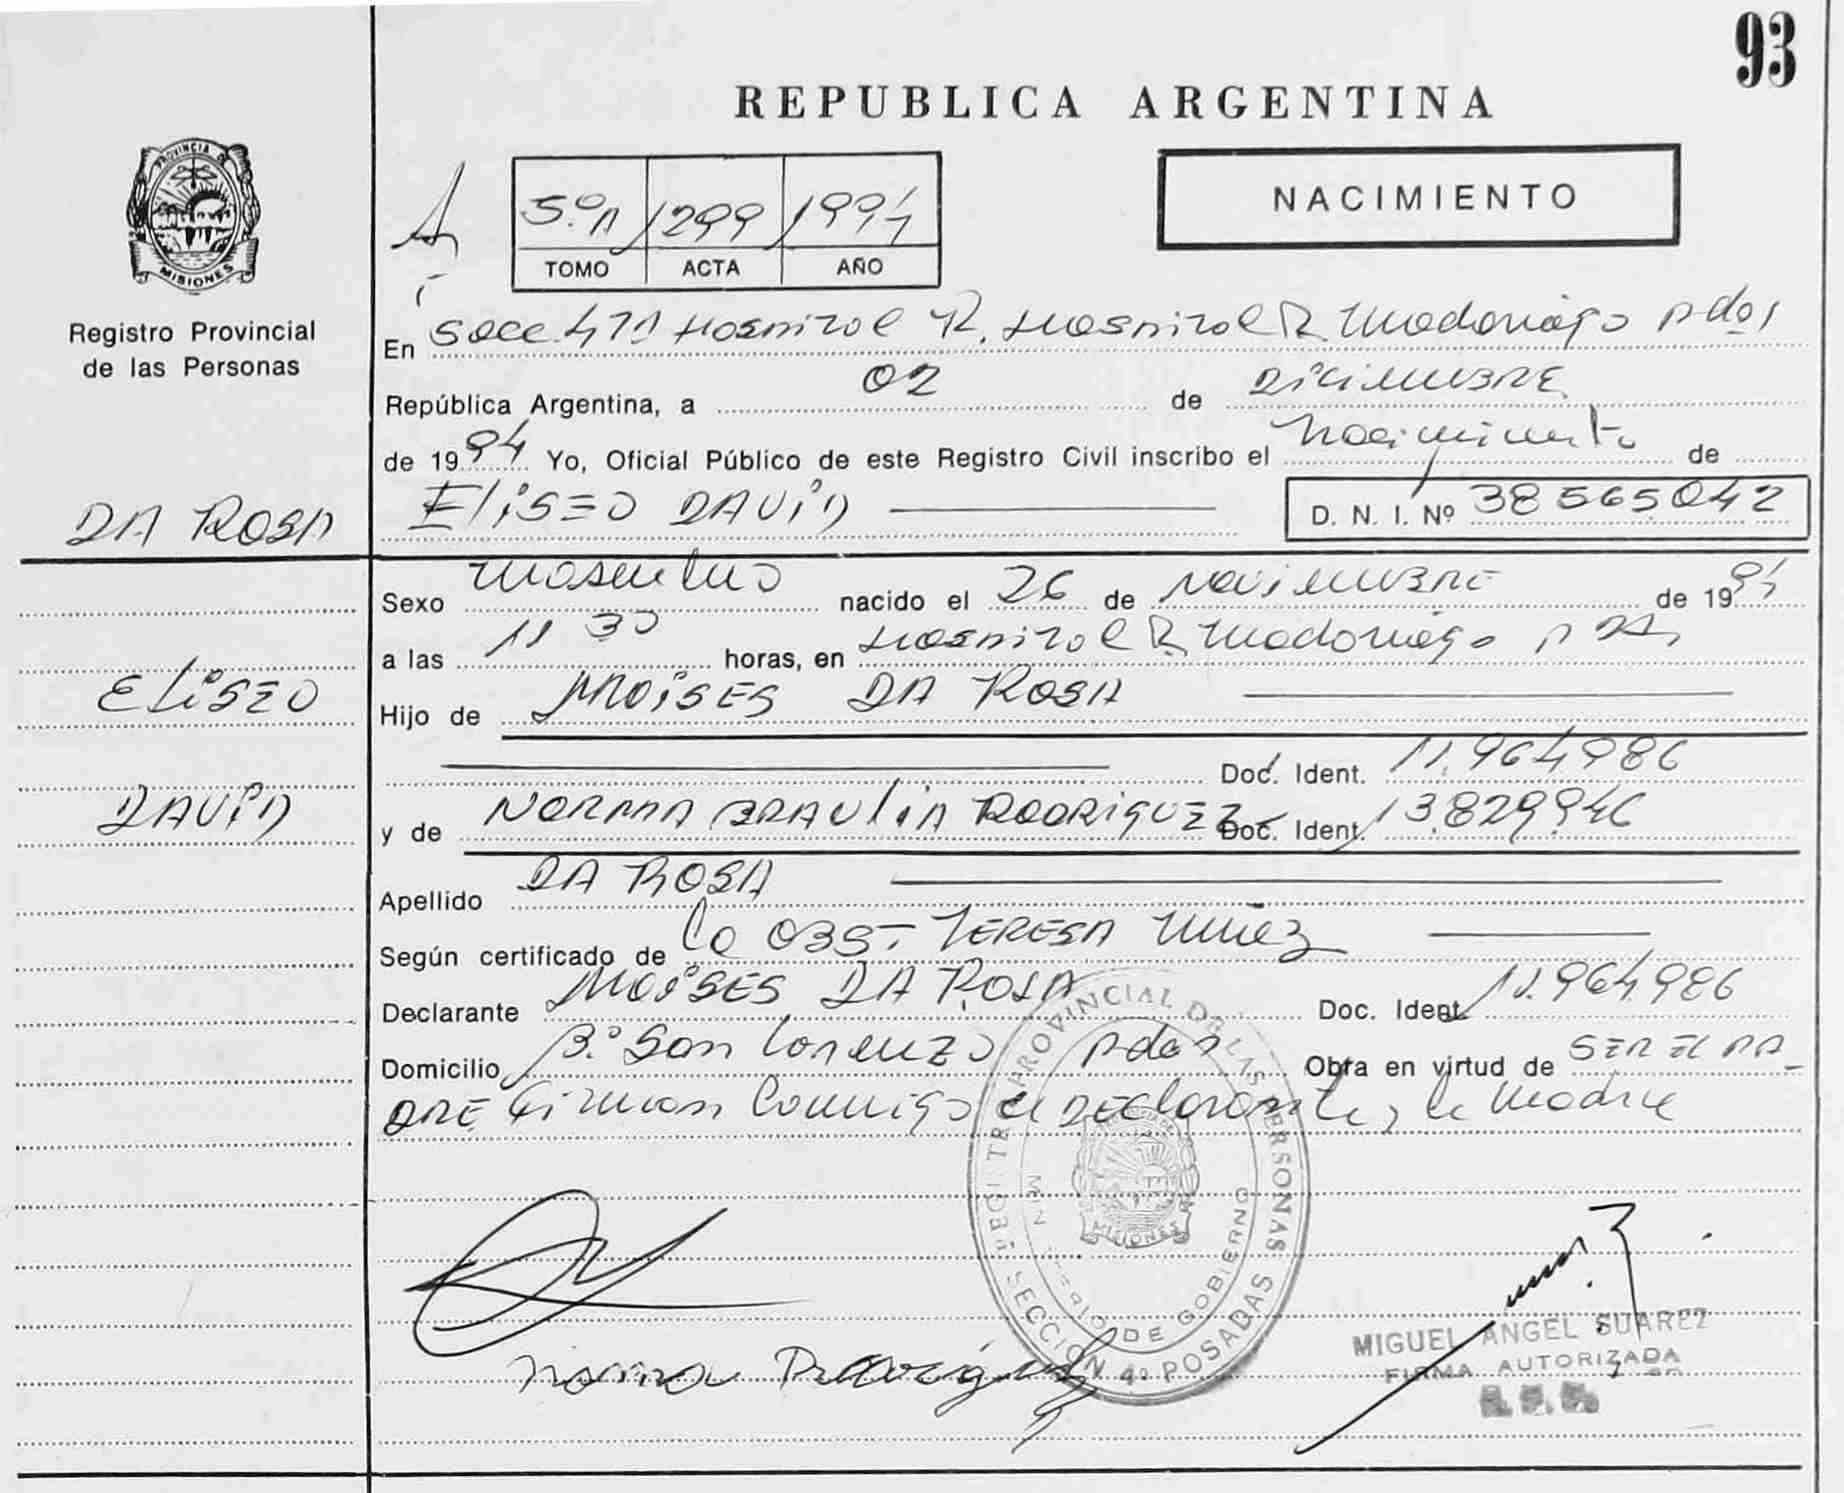 93
REPUBLICA ARGENTINA
PROVINCIA DE
MISIONES
Registro Provincial
de las Personas
5.º A 1299 1994
TOMO ACTA AÑO
NACIMIENTO
En Secc 4ta Hospital R. Hospital R Madariaga Pdas
República Argentina, a 02 de DICIEMBRE
de 1994 Yo, Oficial Público de este Registro Civil inscribo el Nacimiento de
ELISEO DAVID
D. N. I. Nº 38565042
DA ROSA
ELISEO
DAVID
Sexo Masculino nacido el 26 de NOVIEMBRE de 1994
a las 11 30 horas, en Hospital R Madariaga Pdas
Hijo de MOISES DA ROSA
Doc. Ident. 11.964986
y de NORMA BRAULIA RODRIGUEZ Doc. Ident. 13.829946
Apellido DA ROSA
Según certificado de la OBST TERESA Nuñez
Declarante MOISES DA ROSA Doc. Ident. 11.964986
Domicilio Bº San Lorenzo Pdas Obra en virtud de SER EL PA
DRE Firman Conmigo el DEClarante y la Madre
REGISTRO PROVINCIAL DE LAS PERSONAS
MINISTERIO DE GOBIERNO
SECCION 4º POSADAS
MISIONES
Norma Rodriguez
MIGUEL ANGEL SUAREZ
FIRMA AUTORIZADA